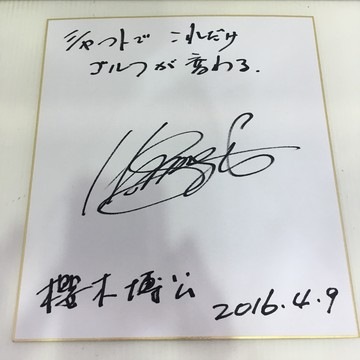 シャフトで これだけ
ゴルフが 変わる.
櫻木 博公
2016.4.9